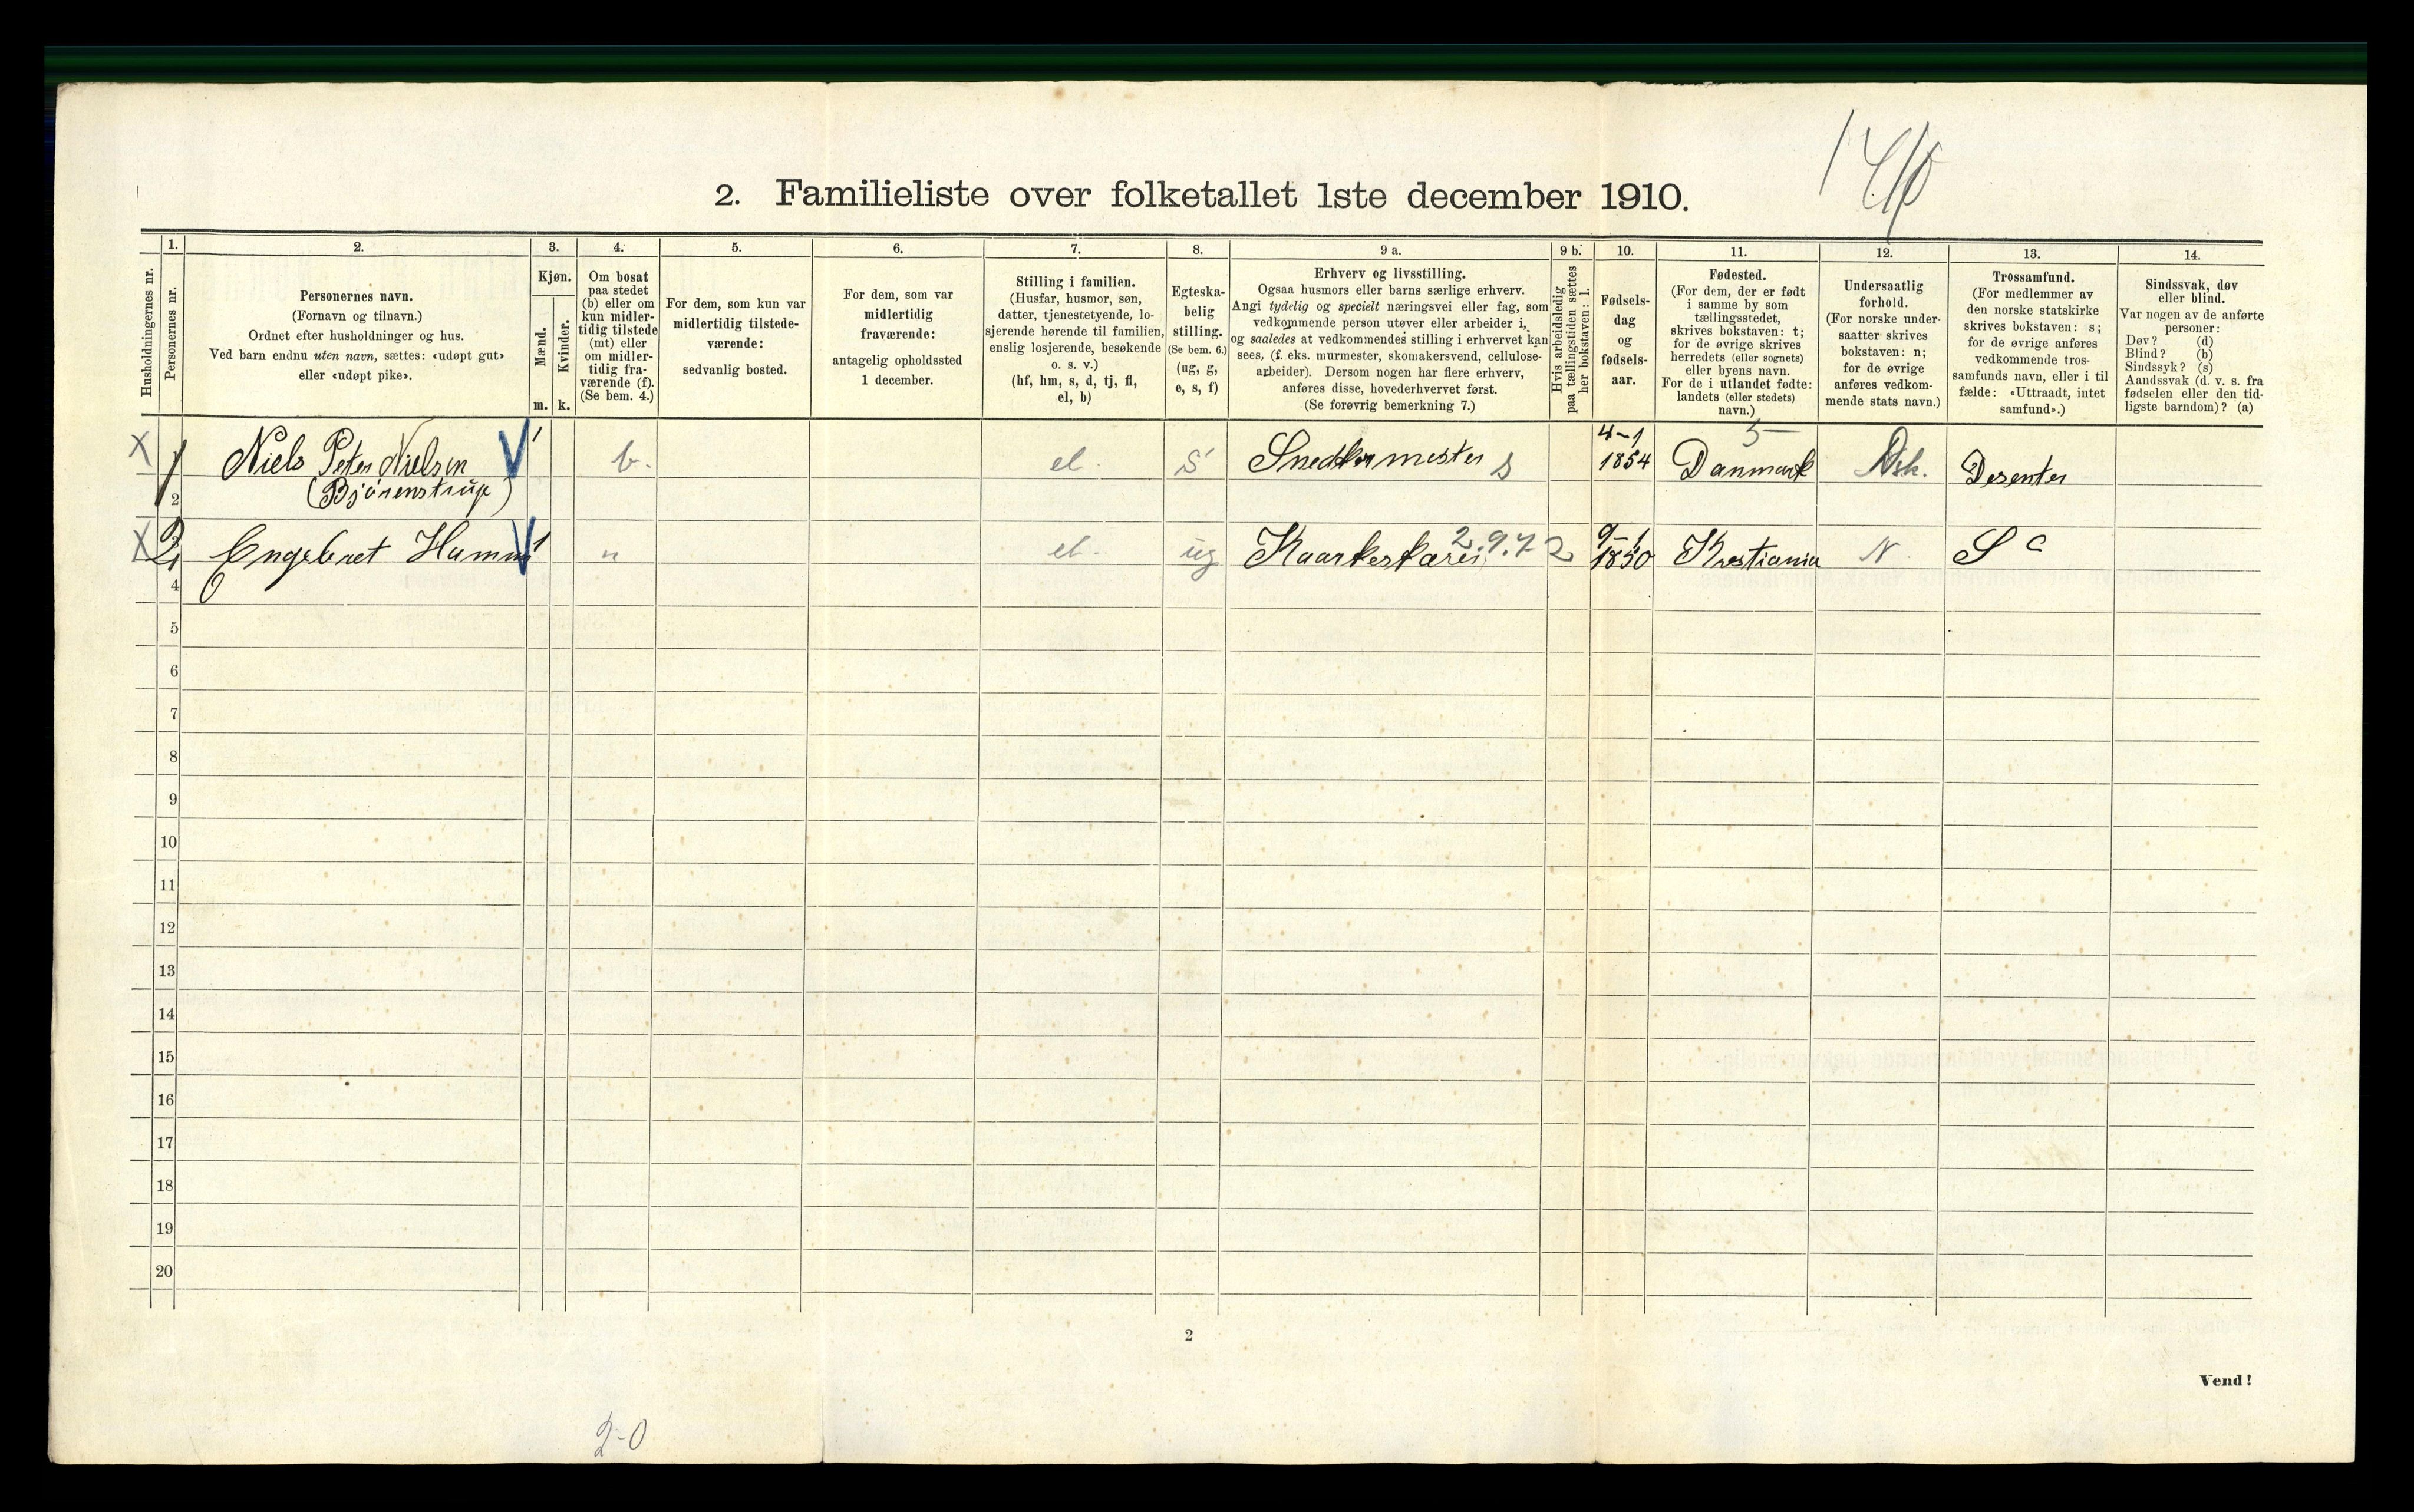 2. Familieliste over folketallet 1ste december 1910.
1. 2. 3. 4. 5. 6. 7. 8. 9 a. 9 b. 10. 11. 12. 13. 14.
Husholdningernes nr.
Personernes nr.
Personernes navn.
(Fornavn og tilnavn.)
Ordnet efter husholdninger og hus.
Ved barn endnu uten navn, sættes: «udøpt gut»
eller «udøpt pike».
Kjøn.
Mænd.
m.
Kvinder.
k.
Om bosat
paa stedet
(b) eller om
kun midler-
tidig tilstede
(mt) eller
om midler-
tidig fra-
værende (f).
(Se bem. 4.)
For dem, som kun var
midlertidig tilstede-
værende:
sedvanlig bosted.
For dem, som var
midlertidig
fraværende:
antagelig opholdssted
1 december.
Stilling i familien.
(Husfar, husmor, søn,
datter, tjenestetyende, lo-
sjerende hørende til familien,
enslig losjerende, besøkende
o. s. v.)
(hf, hm, s, d, tj, fl,
el, b)
Egteska-
belig
stilling.
(Se bem. 6.)
(ug, g,
e, s, f)
Erhverv og livsstilling.
Ogsaa husmors eller barns særlige erhverv.
Angi tydelig og specielt næringsvei eller fag, som
vedkommende person utøver eller arbeider i,
og saaledes at vedkommendes stilling i erhvervet kan
sees, (f. eks. murmester, skomakersvend, cellulose-
arbeider). Dersom nogen har flere erhverv,
anføres disse, hovederhvervet først.
(Se forøvrig bemerkning 7.)
Hvis arbeidsledig
paa tællingstiden sættes
her bokstaven: l.
Fødsels-
dag
og
fødsels-
aar.
Fødested.
(For dem, der er født
i samme by som
tællingsstedet,
skrives bokstaven: t;
for de øvrige skrives
herredets (eller sognets)
eller byens navn.
For de i utlandet fødte:
landets (eller stedets)
navn.)
Undersaatlig
forhold.
(For norske under-
saatter skrives
bokstaven: n;
for de øvrige
anføres vedkom-
mende stats navn.)
Trossamfund.
(For medlemmer av
den norske statskirke
skrives bokstaven: s;
for de øvrige anføres
vedkommende tros-
samfunds navn, eller i til
fælde: «Uttraadt, intet
samfund».)
Sindssvak, døv
eller blind.
Var nogen av de anførte
personer:
Døv? (d)
Blind? (b)
Sindssyk? (s)
Aandssvak (d. v. s. fra
fødselen eller den tid-
ligste barndom)? (a)
X 1 Niels Peter Nielsen 1 b. el. S Snedkermester s 4-1 1854 5 Danmark Dsk. Desenter
2 (Bjørenstrup)
X 2 Engebret Hamm 1 el. ug 2.9.7 2 1850 Krestiania N S
4
5
6
7
8
9
10
11
12
13
14
15
16
17
18
19
20
2
Vend!
2-0